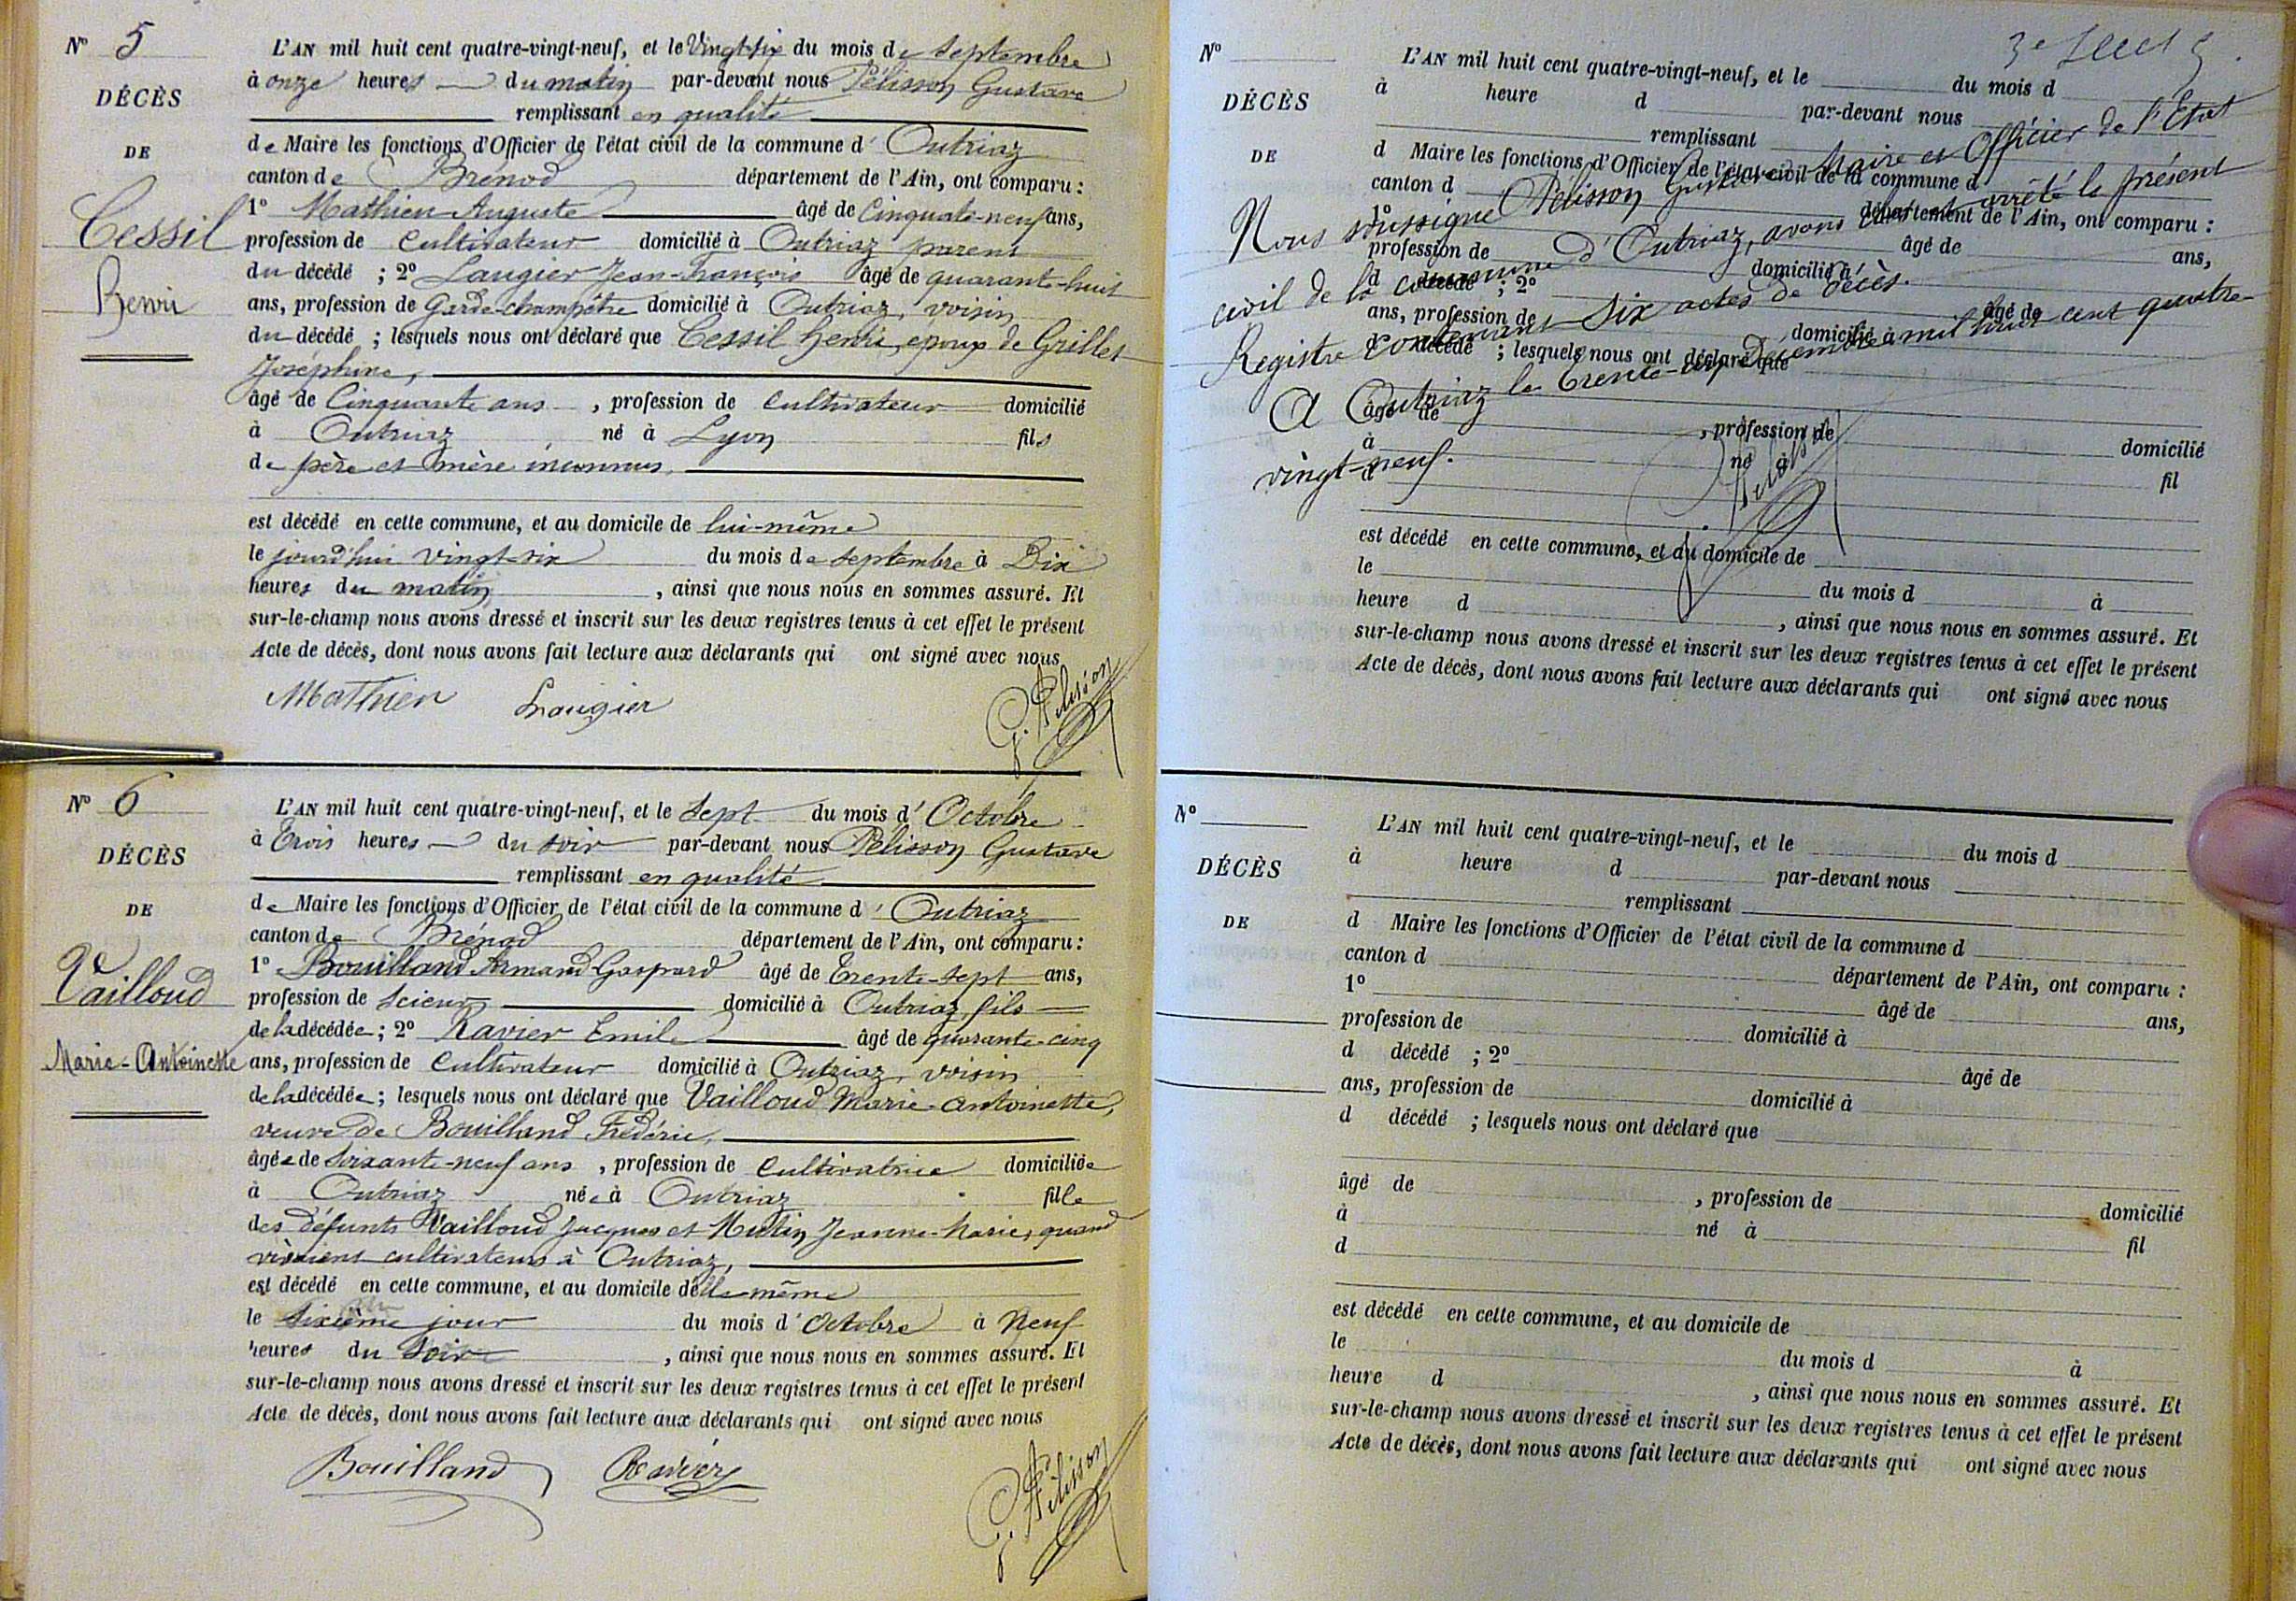 N° 5
DÉCÈS
DE
Cessil
Henri
L'AN mil huit cent quatre-vingt-neuf, et le Vingt-six du mois de septembre
à onze heures du matin par-devant nous Pélisson Gustave
remplissant en qualité
de Maire les fonctions d'Officier de l'état civil de la commune d'Outriaz
canton de Brénod département de l'Ain, ont comparu :
1° Mathieu Auguste âgé de Cinquante-neuf ans,
profession de Cultivateur domicilié à Outriaz parent
du décédé ; 2° Laugier Jean-François âgé de quarante-huit
ans, profession de Garde-champêtre domicilié à Outriaz, voisin
du décédé ; lesquels nous ont déclaré que Cessil Henri, époux de Grillet
Joséphine,
âgé de Cinquante ans , profession de Cultivateur domicilié
à Outriaz né à Lyon fils
de père et mère inconnus,
est décédé en cette commune, et au domicile de lui-même
le jourd'hui vingt-six du mois de septembre à Dix
heures du matin , ainsi que nous nous en sommes assuré. Et
sur-le-champ nous avons dressé et inscrit sur les deux registres tenus à cet effet le présent
Acte de décès, dont nous avons fait lecture aux déclarants qui ont signé avec nous
Mathieu Laugier G. Pélisson
N° 6
DÉCÈS
DE
Vailloud
Marie-Antoinette
L'AN mil huit cent quatre-vingt-neuf, et le Sept du mois d'Octobre
à Trois heures du soir par-devant nous Pélisson Gustave
remplissant en qualité
de Maire les fonctions d'Officier de l'état civil de la commune d'Outriaz
canton de Brénod département de l'Ain, ont comparu :
1° Bouilland Armand Gaspard âgé de Trente-sept ans,
profession de Scieur domicilié à Outriaz, fils
de la décédée ; 2° Ravier Emile âgé de quarante-cinq
ans, profession de Cultivateur domicilié à Outriaz, voisin
de la décédée ; lesquels nous ont déclaré que Vailloud Marie-Antoinette,
veuve de Bouilland Frédéric,
âgée de Soixante-neuf ans , profession de Cultivatrice domiciliée
à Outriaz née à Outriaz fille
des défunts Vailloud Jacques et Mutin Jeanne-Marie, quand
vivaient cultivateurs à Outriaz,
est décédé en cette commune, et au domicile d'elle-même
le Sixième jour du mois d'Octobre à Neuf
heures du Soir , ainsi que nous nous en sommes assuré. Et
sur-le-champ nous avons dressé et inscrit sur les deux registres tenus à cet effet le présent
Acte de décès, dont nous avons fait lecture aux déclarants qui ont signé avec nous
Bouilland Ravier G. Pélisson
N°
DÉCÈS
DE
L'AN mil huit cent quatre-vingt-neuf, et le du mois d
à heure d par-devant nous
remplissant
d Maire les fonctions d'Officier de l'état civil de la commune d
canton d département de l'Ain, ont comparu :
1° âgé de ans,
profession de domicilié à
d décédé ; 2° âgé de
ans, profession de domicilié à
d décédé ; lesquels nous ont déclaré que
âgé de , profession de domicilié
à né à fil
d
est décédé en cette commune, et au domicile de
le du mois d à
heure d , ainsi que nous nous en sommes assuré. Et
sur-le-champ nous avons dressé et inscrit sur les deux registres tenus à cet effet le présent
Acte de décès, dont nous avons fait lecture aux déclarants qui ont signé avec nous
Nous soussigné Pélisson Gustave Maire et Officier de l'État
civil de la commune d'Outriaz, avons clos et arrêté le présent
Registre contenant Six actes de décès.
A Outriaz le trente-un Décembre mil huit cent quatre-
vingt-neuf.
N°
DÉCÈS
DE
L'AN mil huit cent quatre-vingt-neuf, et le du mois d
à heure d par-devant nous
remplissant
d Maire les fonctions d'Officier de l'état civil de la commune d
canton d département de l'Ain, ont comparu :
1° âgé de ans,
profession de domicilié à
d décédé ; 2° âgé de
ans, profession de domicilié à
d décédé ; lesquels nous ont déclaré que
âgé de , profession de domicilié
à né à fil
d
est décédé en cette commune, et au domicile de
le du mois d à
heure d , ainsi que nous nous en sommes assuré. Et
sur-le-champ nous avons dressé et inscrit sur les deux registres tenus à cet effet le présent
Acte de décès, dont nous avons fait lecture aux déclarants qui ont signé avec nous